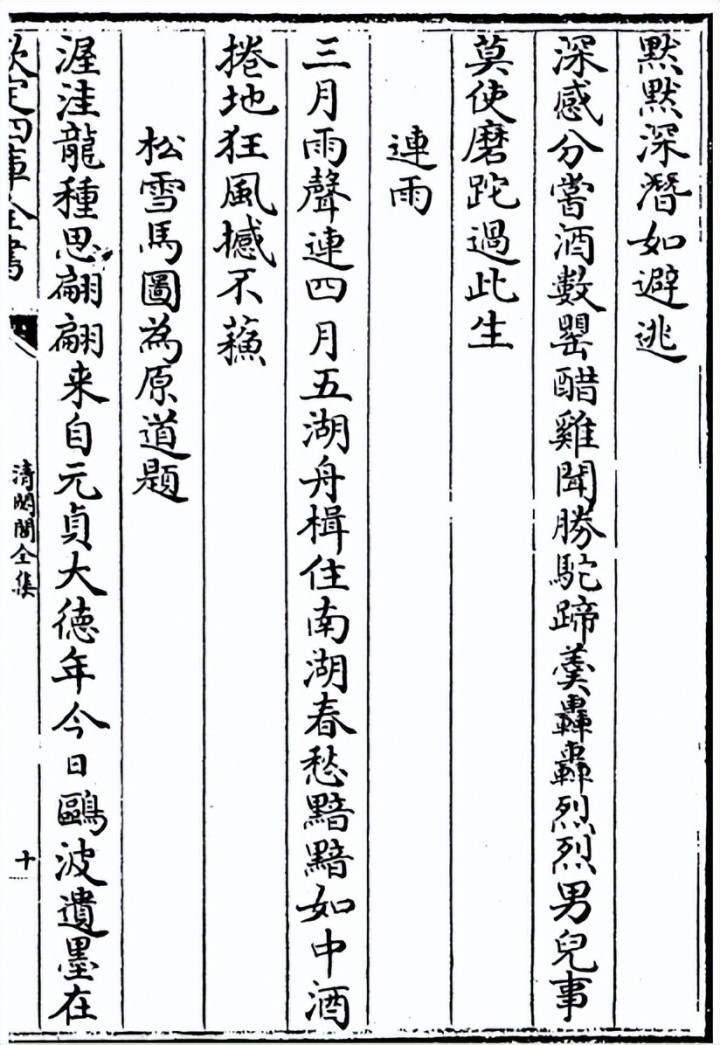 默默深潛如避逃
深感分嘗酒數罌醋雞聞勝駝蹄羹轟轟烈烈男兒事
莫使磨跎過此生
連雨
三月雨聲連四月五湖舟楫住南湖春愁黯黯如中酒
捲地狂風撼不蘓
松雪馬圖為原道題
渥洼龍種思翩翩来自元貞大徳年今日鷗波遺墨在
欽定四庫全書
清閟閣全集
十